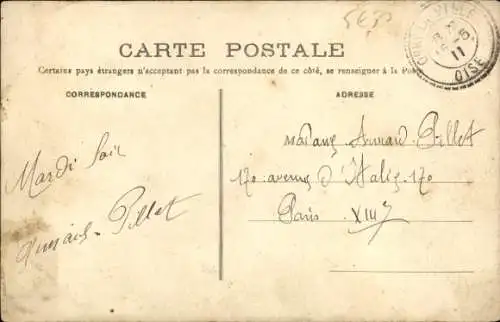 5E
CARTE POSTALE
Certains pays étrangers n'acceptant pas la correspondance de ce côté, se renseigner à la Poste
CORRESPONDANCE
ADRESSE
OISE
11
Mardi soir
Pillet
Madame Armand Pillet
170 avenue d'Italie 170
Paris XIIIe